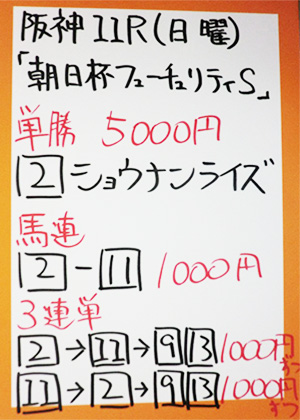 阪神11R(日曜)
「朝日杯フューチュリティS」
単勝 5000円
2 ショウナンライズ
馬連
2-11 1000円
3連単
2→11→9 13 1000円ずつ
11→2→9 13 1000円ずつ